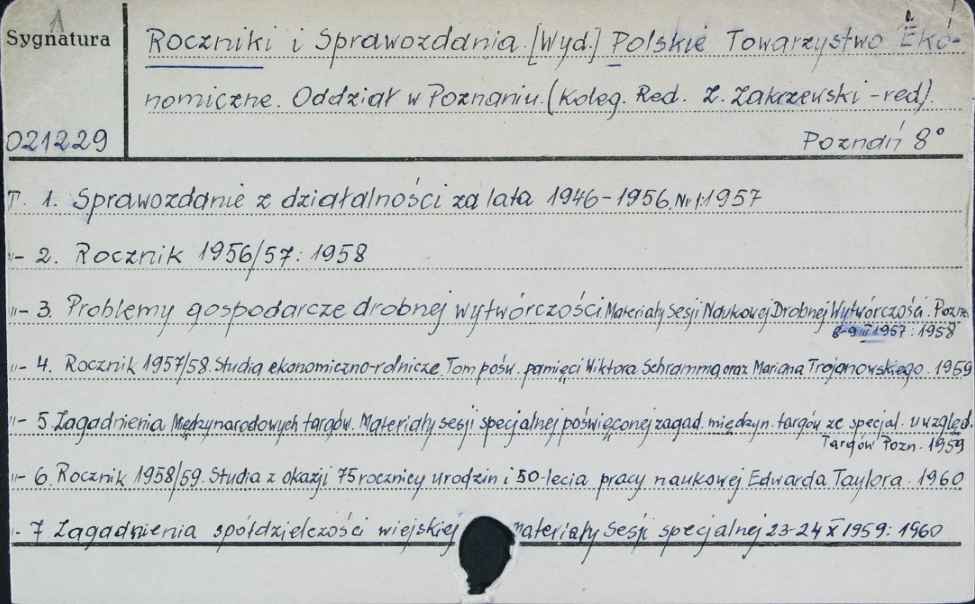 1
Sygnatura
Roczniki i Sprawozdania. [Wyd.] Polskie Towarzystwo Eko-
nomiczne. Oddział w Poznaniu. (Koleg. Red. Z. Zakrzewski - red).
021229
Poznań 8°
T. 1. Sprawozdanie z działalności za lata 1946-1956. Nr 1: 1957
"- 2. Rocznik 1956/57: 1958
"- 3. Problemy gospodarcze drobnej wytwórczości Materiały Sesji Naukowej Drobnej Wytwórczości. Pozn.
8-9 III 1957: 1958
"- 4. Rocznik 1957/58. Studia ekonomiczno-rolnicze. Tom pośw. pamięci Wiktora Schramma oraz Mariana Trojanowskiego. 1959
"- 5 Zagadnienia Międzynarodowych targów. Materiały sesji specjalnej poświęconej zagad. międzyn. targów ze specjal. uwzględ.
Targów Pozn. 1959
"- 6. Rocznik 1958/59. Studia z okazji 75 rocznicy urodzin i 50-lecia pracy naukowej Edwarda Taylora. 1960
"- 7 Zagadnienia spółdzielczości wiejskiej materiały Sesji specjalnej 23-24 X 1959: 1960